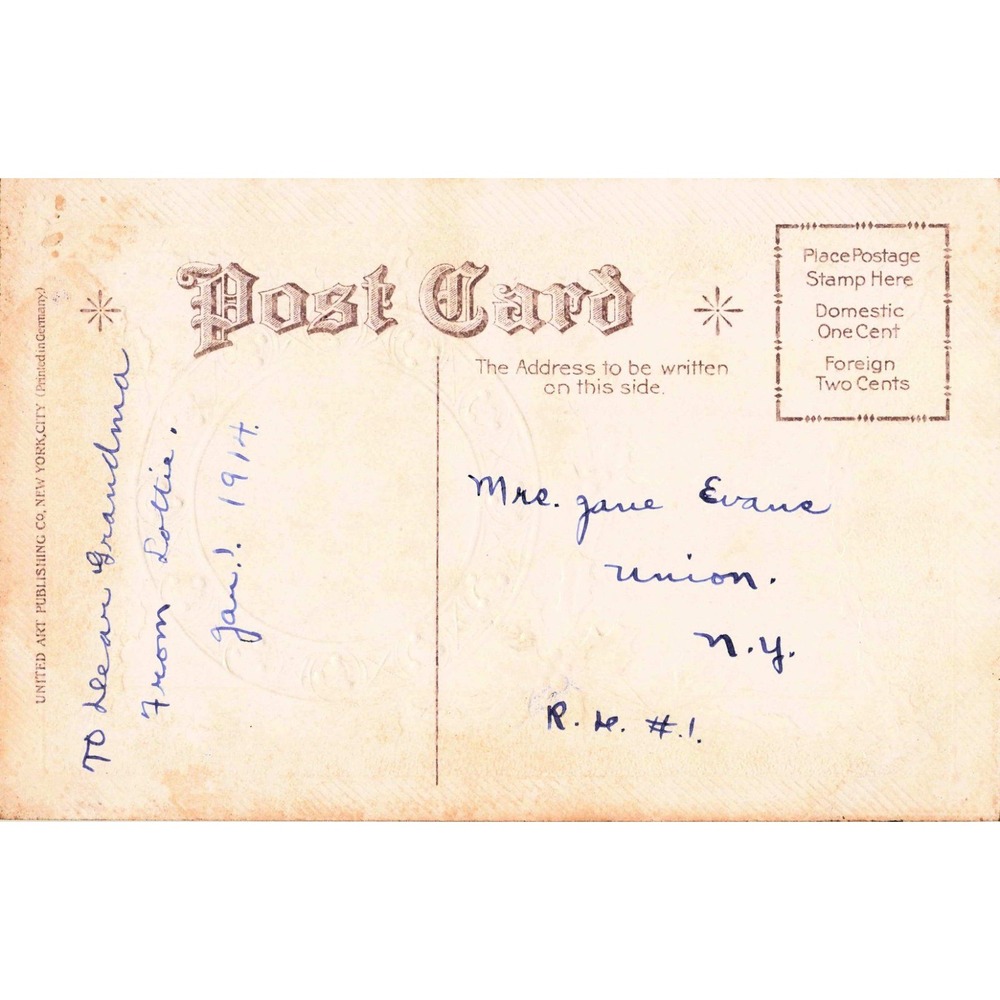 Post Card
The Address to be written
on this side.
Place Postage
Stamp Here
Domestic
One Cent
Foreign
Two Cents
UNITED ART PUBLISHING CO, NEW YORK, CITY (Printed in Germany.)
TO Dear Grandma
From Lottie.
Jan. 1. 1914.
Mrs. Jane Evans
Union.
N.Y.
R. D. #.1.